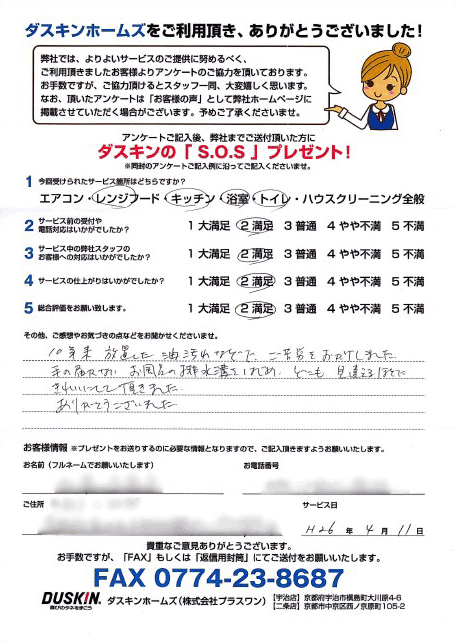 ダスキンホームズをご利用頂き、ありがとうございました！
弊社では、よりよいサービスのご提供に努めるべく、
ご利用頂きましたお客様よりアンケートのご協力を頂いております。
お手数ですが、ご協力頂けるとスタッフ一同、大変嬉しく思います。
なお、頂いたアンケートは「お客様の声」として弊社ホームページに
掲載させていただく場合がございます。予めご了承くださいませ。
アンケートご記入後、弊社までご送付頂いた方に
ダスキンの「S.O.S」プレゼント！
※同封のアンケートご記入例に沿ってご記入くださいませ。
1 今回受けられたサービス箇所はどちらですか？
エアコン・レンジフード・キッチン・浴室・トイレ・ハウスクリーニング全般
2 サービス前の受付や
電話対応はいかがでしたか？ 1 大満足 2 満足 3 普通 4 やや不満 5 不満
3 サービス中の弊社スタッフの
お客様への対応はいかがでしたか？ 1 大満足 2 満足 3 普通 4 やや不満 5 不満
4 サービスの仕上がりはいかがでしたか？ 1 大満足 2 満足 3 普通 4 やや不満 5 不満
5 総合評価をお願い致します。 1 大満足 2 満足 3 普通 4 やや不満 5 不満
その他、ご感想やお気づきの点などをお聞かせくださいませ。
10年来 放置した 油汚れなどで、ご苦労をおかけしました
手の届かない お風呂の排水溝をはじめ、どこも 見違えるほどに
きれいにして頂きました
ありがとうございました
お客様情報 ※プレゼントをお送りするのに必要な情報となりますので、ご記入頂きますようお願いいたします。
お名前（フルネームでお願いいたします） お電話番号
ご住所 サービス日
H26 年 4 月 11 日
貴重なご意見ありがとうございます。
お手数ですが、「FAX」もしくは「返信用封筒」にてご送付をお願いいたします。
FAX 0774-23-8687
DUSKIN.
喜びのタネをまこう
ダスキンホームズ（株式会社プラスワン）
【宇治店】京都府宇治市槇島町大川原4-6
【二条店】京都市中京区西ノ京原町105-2